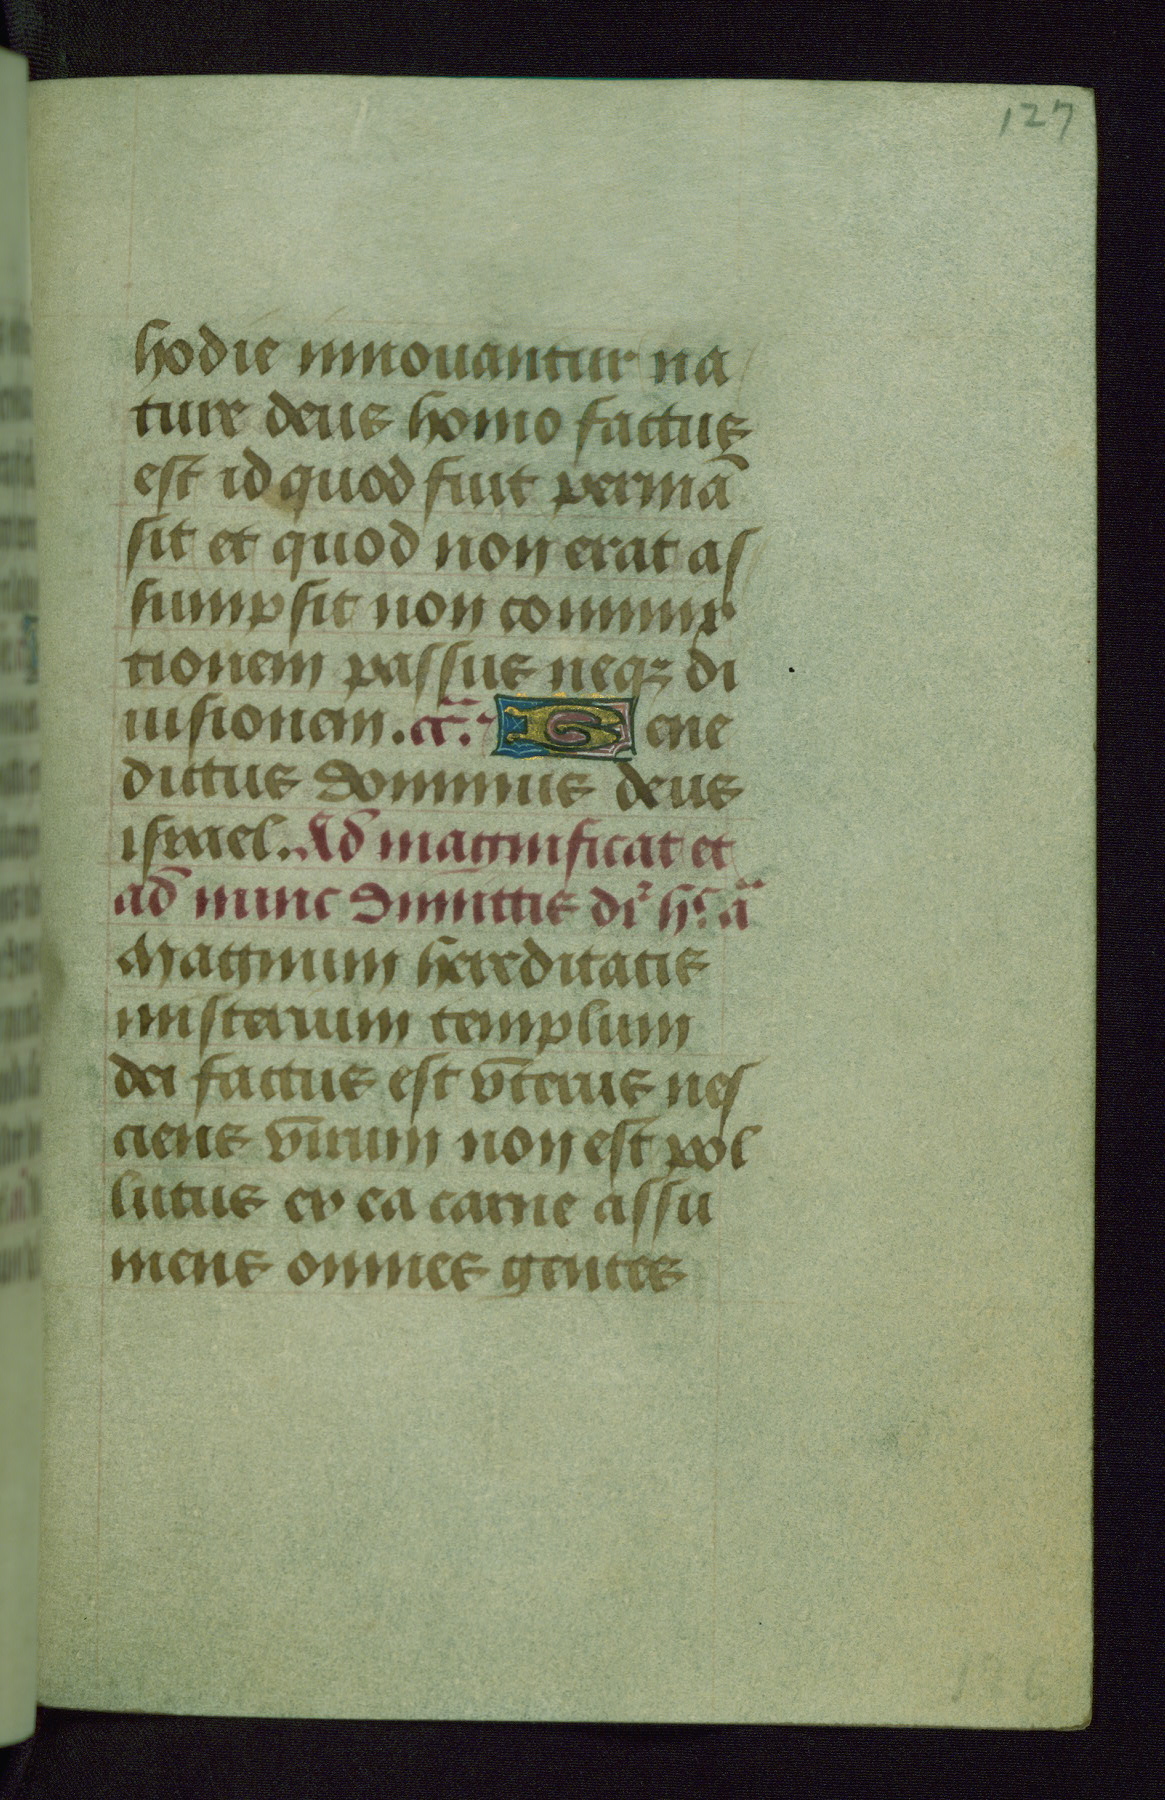 127
hodie innovantur na
ture deus homo factus
est id quod fuit permā
sit et quod non erat as
sumpsit non commix
tionem passus neqȝ di
uisionem. cā. Bene
dictus dominus deus
israel. Ad magnificat et
ad nunc dimittis dr̄ h̄ ā
Magnum hereditatis
misterium templum
dei factus est vterus nes
ciens virum non est pol
lutus ex ea carne assu
mens omnes gentes
126